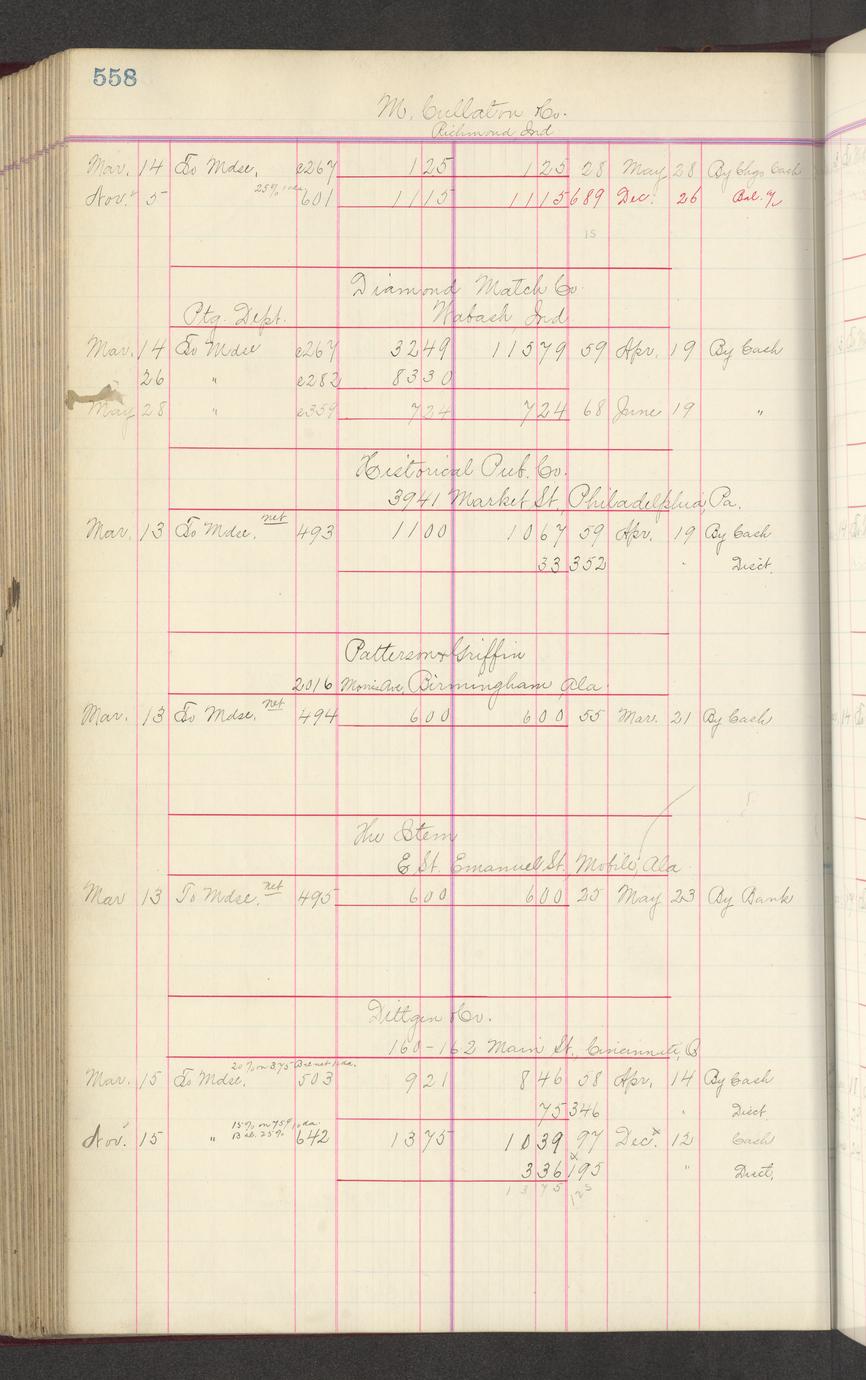 558
M. Cullaton & Co.
Richmond Ind
Mar. 14 To Mdse. e267 125 125 28 May 28 By Chgs Cash
Nov. 5 25% 601 1115 1115 689 Dec. 26 Bal. 
15
Diamond Match Co.
Ptg. Dept. Wabash Ind
Mar. 14 To Mdse e267 3249 11579 59 Apr. 19 By Cash
26 " e282 8330
May 28 " e359 724 724 68 June 19 "
Historical Pub. Co.
3941 Market St., Philadelphia, Pa.
Mar. 13 To Mdse. net 493 1100 1067 59 Apr. 19 By Cash
33 352 " Disct.
Patterson & Griffin
2016 Morris Ave, Birmingham Ala.
Mar. 13 To Mdse. net 494 600 600 55 Mar. 21 By Cash
The Stem
E St. Emanuel St. Mobile, Ala
Mar 13 To Mdse. net 495 600 600 25 May 23 By Bank
Dittgen & Co.
160-162 Main St., Cincinnati, O
20% on 3.75 Bal net
Mar. 15 To Mdse. 503 921 846 58 Apr. 14 By Cash
75 346 " Disct
15% on 75%
Nov. 15 " Bal. 25% 642 1375 1039 97 Dec. 12 Cash
336 195 " Disct.
1375 125